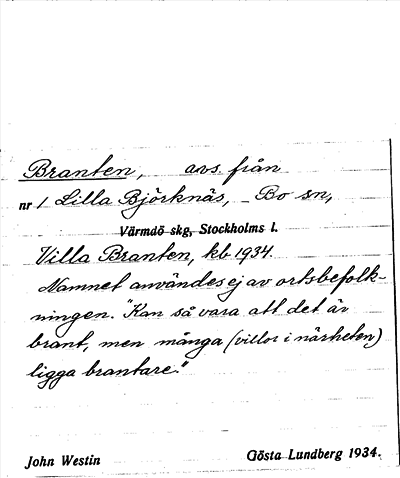 Branten, avs. från
nr 1 Lilla Björknäs, Bo sn,
Värmdö skg, Stockholms l.
Villa Branten, kb 1934.
Namnet användes ej av ortsbefolk-
ningen. "Kan så vara att det är
brant, men många (villor i närheten)
ligga brantare."
John Westin Gösta Lundberg 1934.